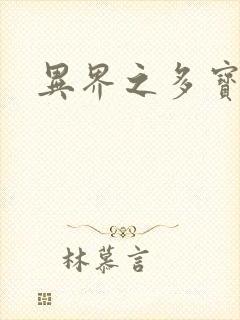 異界之多寶
林慕言